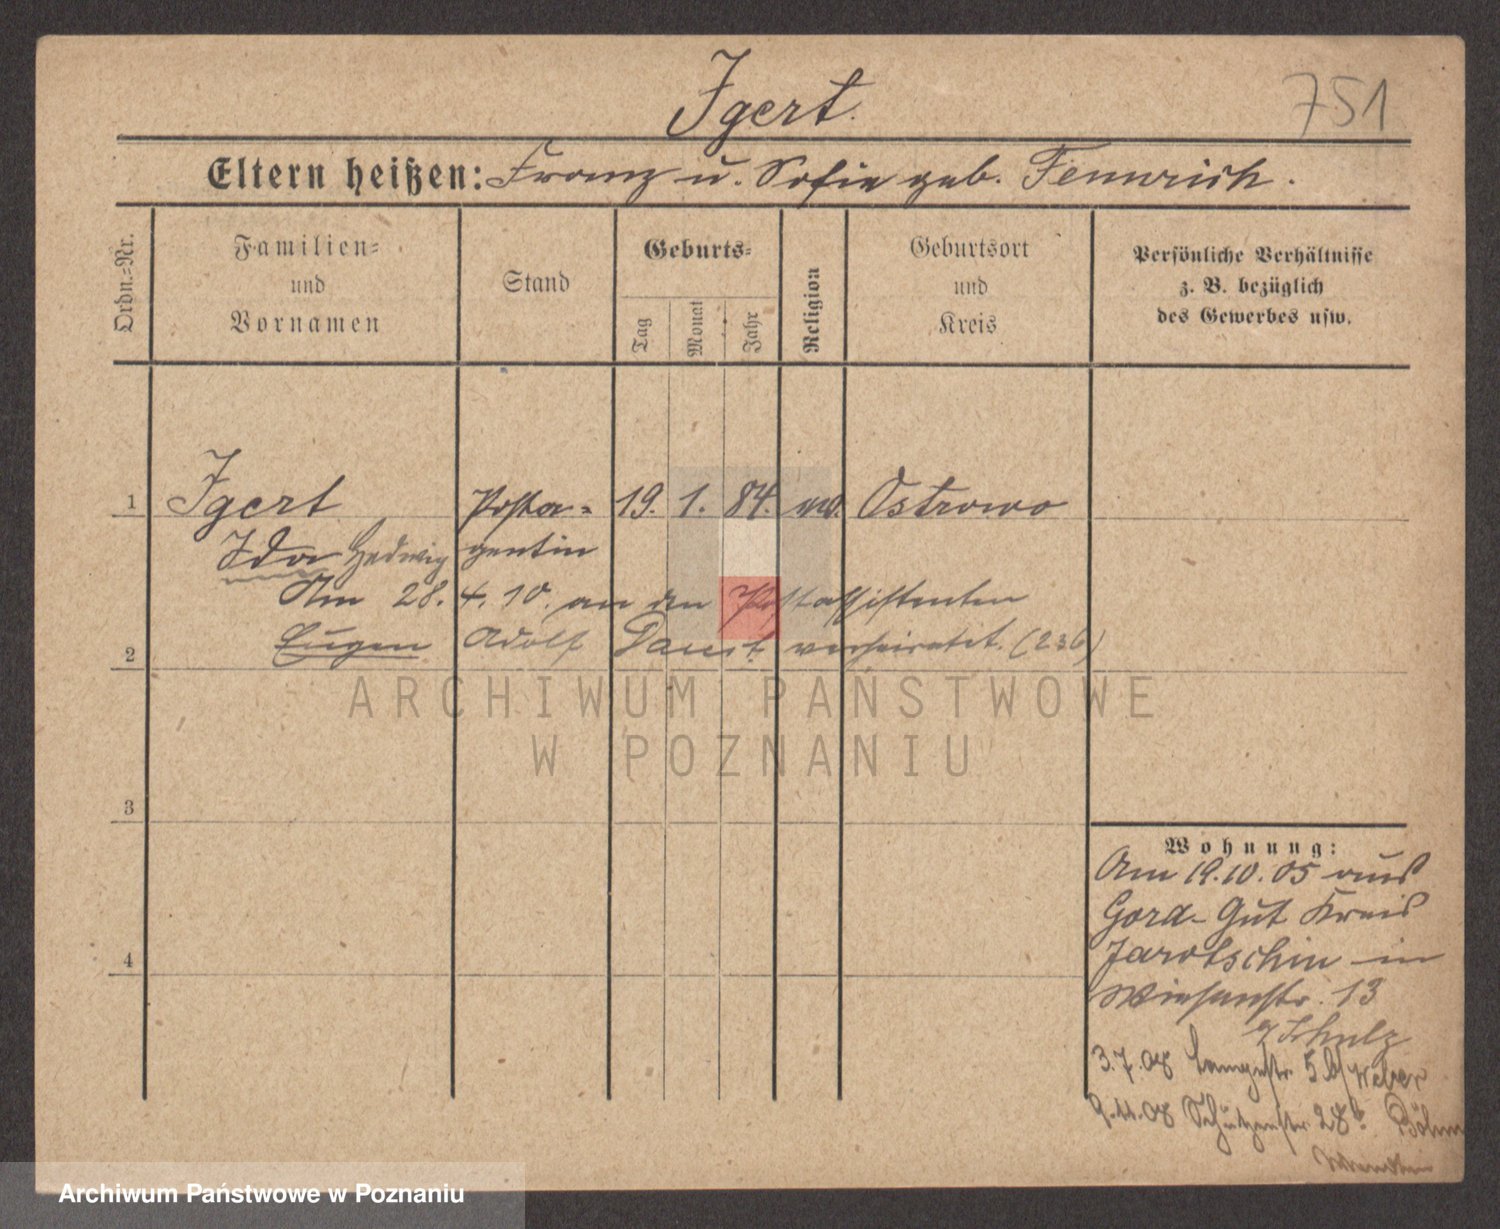 Igert.
751
Eltern heißen: Franz u. Sofie geb. Fennrich.
Ordn.=Nr.
Familien=
und
Vornamen
Stand
Geburts=
Tag
Monat
Jahr
Religion
Geburtsort
und
Kreis
Persönliche Verhältnisse
z. B. bezüglich
des Gewerbes usw.
1 Igert Posta= 19. 1. 84. ev. Ostrowo
Ida Hedwig gentin
Am 28. 4. 10. an den Postassistenten
2 Eugen Adolf Daust verheiratet. (236)
ARCHIWUM PAŃSTWOWE
W POZNANIU
3
4
Wohnung:
Am 19.10.05 aus
Gora-Gut Kreis
Jarotschin in
Wiesenstr. 13
b/ Schulz
3.7.08 Langestr. 5 b/ Weber
9.11.08 Schützenstr. 28b Böhm
Archiwum Państwowe w Poznaniu